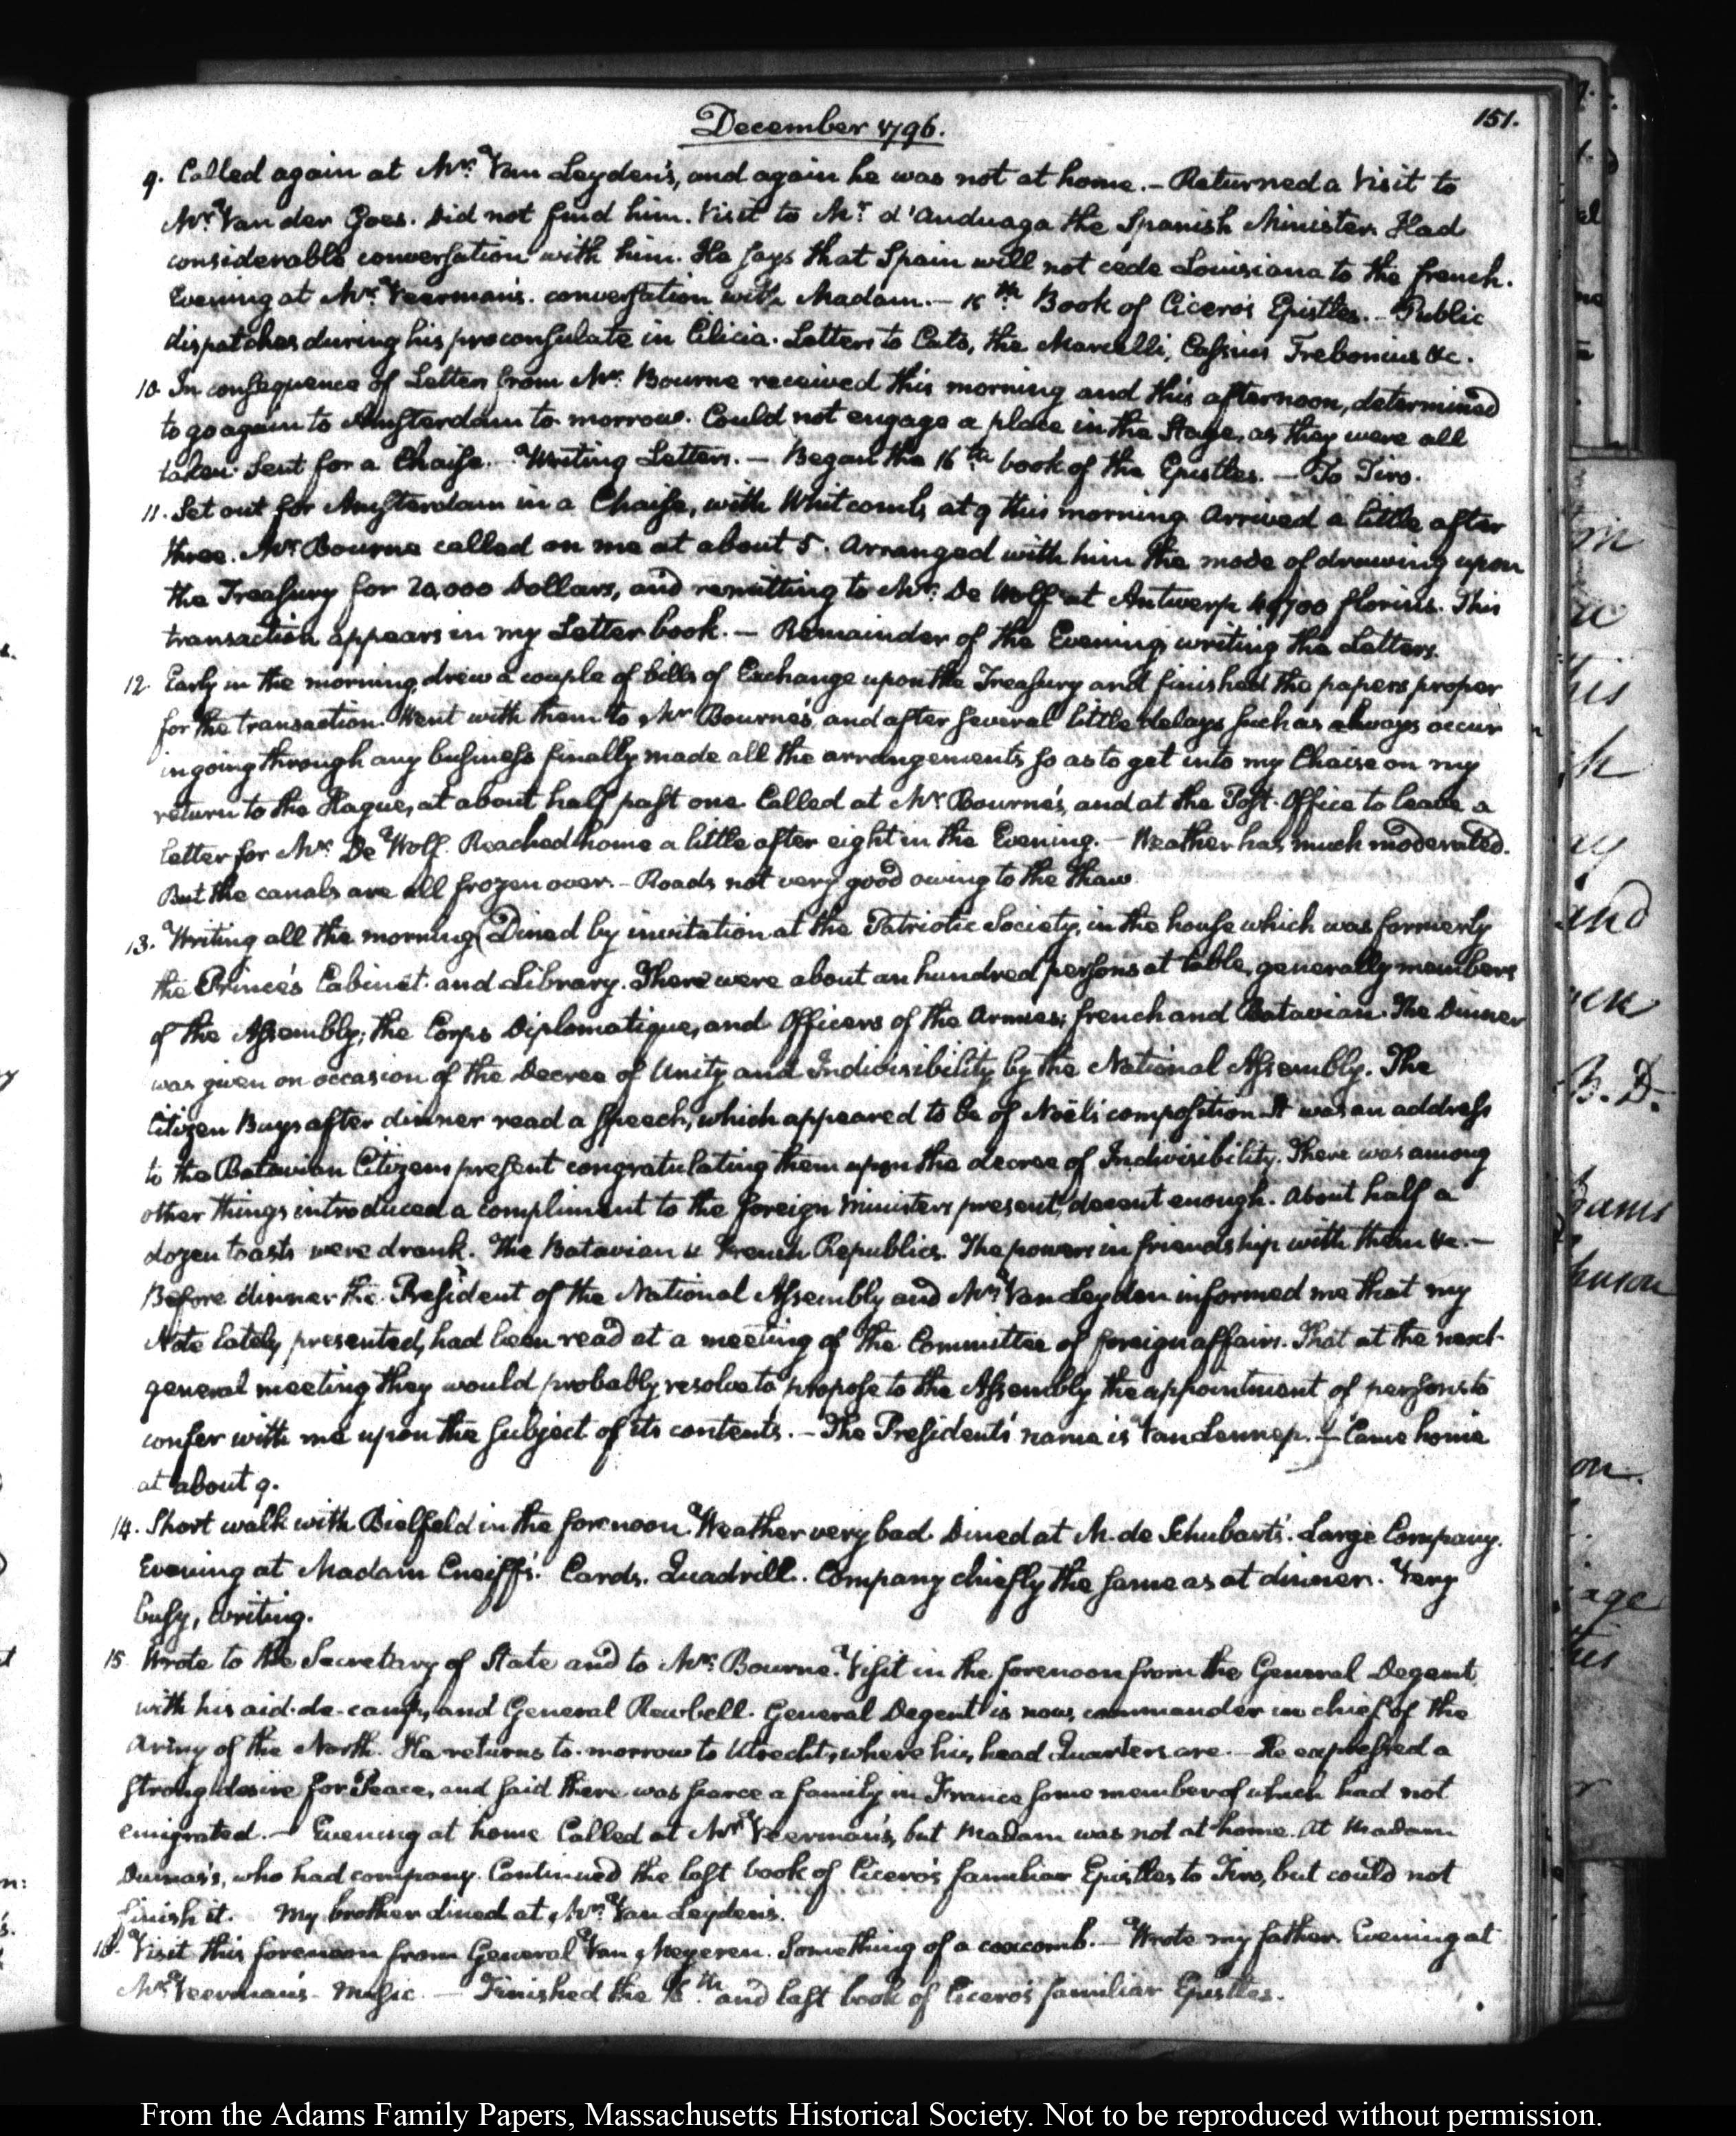 December 1796.
151.
9. Called again at Mr. Van Leyden's, and again he was not at home. — Returned a Visit to
Mr. Van der Goes. Did not find him. Visit to Mr. d'Anduaga the Spanish Minister. Had
considerable conversation with him. He says that Spain will not cede Louisiana to the french.
Evening at Mr. Veerman's. conversation with Madam. — 15th. Book of Cicero's Epistles. — Public
dispatches during his proconsulate in Cilicia. Letters to Cato, the Marcelli, Cassius Trebonius &c.
10. In consequence of Letters from Mr. Bourne received this morning and this afternoon, determined
to go again to Amsterdam to-morrow. Could not engage a place in the Stage, as they were all
taken. Sent for a Chaise. Writing Letters. — Began the 16th book of the Epistles. — To Tiro.
11. Set out for Amsterdam in a Chaise, with Whitcomb, at 9 this morning. Arrived a little after
three. Mr. Bourne called on me at about 5. Arranged with him the mode of drawing upon
the Treasury for 20,000 Dollars, and remitting to Mr. De Wolf at Antwerp florins. This
transaction appears in my Letter book. — Remainder of the Evening writing the Letters.
12. Early in the morning, drew a couple of bills of Exchange upon the Treasury and finished the papers proper
for the transaction. Went with them to Mr. Bourne's, and after several little delays such as always occur
in going through any business finally made all the arrangements so as to get into my Chaise on my
return to the Hague, at about half past one. Called at Mr. Bourne's, and at the Post-Office to leave a
letter for Mr. De Wolf. Reached home a little after eight in the Evening. — Weather has much moderated.
But the canals are all frozen over. — Roads not very good owing to the thaw
13. Writing all the morning. Dined by invitation at the Patriotic Society, in the house which was formerly
the Prince's Cabinet and Library. There were about an hundred persons at table, generally members
of the Assembly; the Corps Diplomatique, and Officers of the Armies, french and Batavian. The Dinner
was given on occasion of the Decree of Unity and Indivisibility by the National Assembly. The
Citizen Buys after dinner read a speech, which appeared to be of Noël's composition. It was an address
to the Batavian Citizens present congratulating them upon the decree of Indivisibility. There was among
other things introduced a compliment to the foreign Ministers present, decent enough. About half a
dozen toasts were drank. The Batavian & French Republics. The powers in friendship with them &c. —
Before dinner the President of the National Assembly and Mr. Van Leyden informed me that my
Note lately presented, had been read at a meeting of the Committee of foreign affairs. That at the next
general meeting they would probably resolve to propose to the Assembly the appointment of persons to
confer with me upon the subject of its contents. — The President's name is Van Lennep. — Came home
at about 9.
14. Short walk with Bielfeld in the forenoon. Weather very bad. Dined at M. de Schubart's. Large Company.
Evening at Madam Cneiff's. Cards. Quadrill. Company chiefly the same as at dinner. Very
busy, writing.
15. Wrote to the Secretary of State and to Mr. Bourne. Visit in the forenoon from the General Degent
with his aid-de-camp, and General Rewbell. General Degent is now commander in chief of the
Army of the North. He returns to-morrow to Utrecht, where his head Quarters are. — He expressed a
strong desire for Peace, and said there was scarce a family in France some member of which had not
emigrated. — Evening at home. Called at Mr. Veerman's, but Madam was not at home. At Madam
Dumas's, who had company. Continued the last book of Cicero's familiar Epistles to Tiro, but could not
finish it. My brother dined at Mr. Van Leyden's.
16. Visit this forenoon from General Van Meyeren. Something of a coxcomb. — Wrote my father. Evening at
Mr. Veerman's. Music. — Finished the 16th. and last book of Cicero's familiar Epistles.
From the Adams Family Papers, Massachusetts Historical Society. Not to be reproduced without permission.